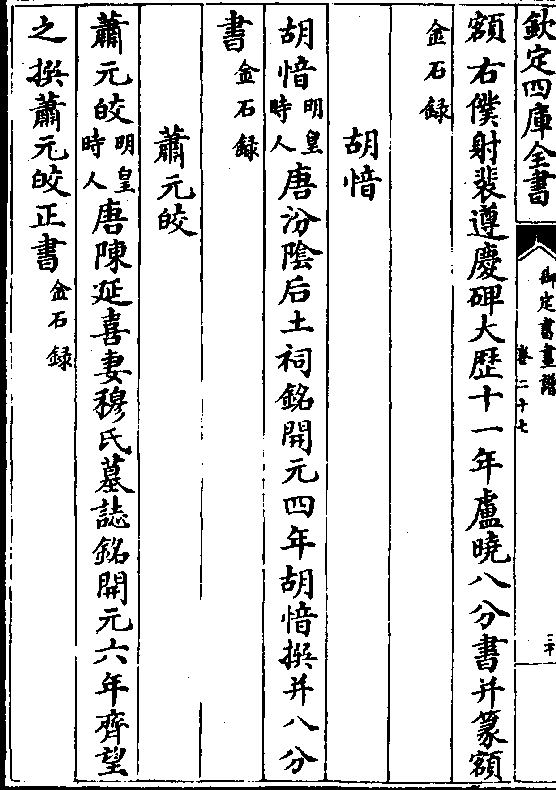 欽定四庫全書
御定書畫譜
卷二十七
三十
額右僕射裴遵慶碑大歴十一年盧曉八分書并篆額
金石録
胡愔
胡愔明皇時人唐汾陰后土祠銘開元四年胡愔撰并八分
書金石録
蕭元皎
蕭元皎明皇時人唐陳延喜妻穆氏墓誌銘開元六年齊望
之撰蕭元皎正書金石録